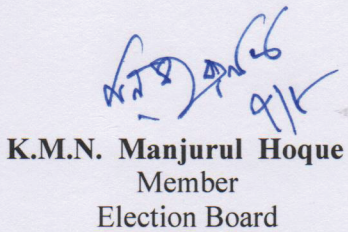 ৭/৮
K.M.N. Manjurul Hoque
Member
Election Board